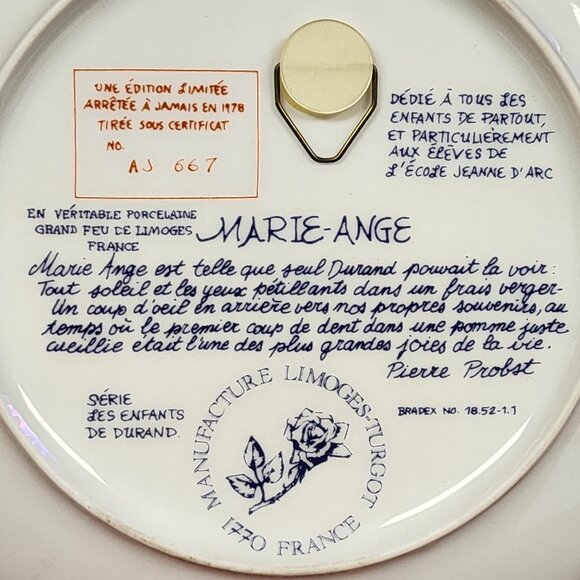 UNE ÉDITION LIMITÉE
ARRÊTÉE À JAMAIS EN 1978
TIRÉE SOUS CERTIFICAT
NO.
AJ 667
DÉDIÉ À TOUS LES
ENFANTS DE PARTOUT,
ET PARTICULIÈREMENT
AUX ÉLÈVES DE
L'ÉCOLE JEANNE D'ARC
EN VÉRITABLE PORCELAINE
GRAND FEU DE LIMOGES
FRANCE
MARIE-ANGE
Marie Ange est telle que seul Durand pouvait la voir:
Tout soleil et les yeux pétillants dans un frais verger-
Un coup d'oeil en arrière vers nos propres souvenirs, au
temps où le premier coup de dent dans une pomme juste
cueillie était l'une des plus grandes joies de la vie.
Pierre Probst
SÉRIE
LES ENFANTS
DE DURAND.
MANUFACTURE LIMOGES-TURGOT
1770 FRANCE
BRADEX NO. 18.52-1.1